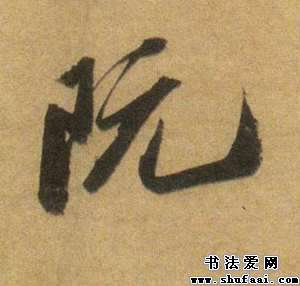 阮
书法爱网
www.shufaai.com